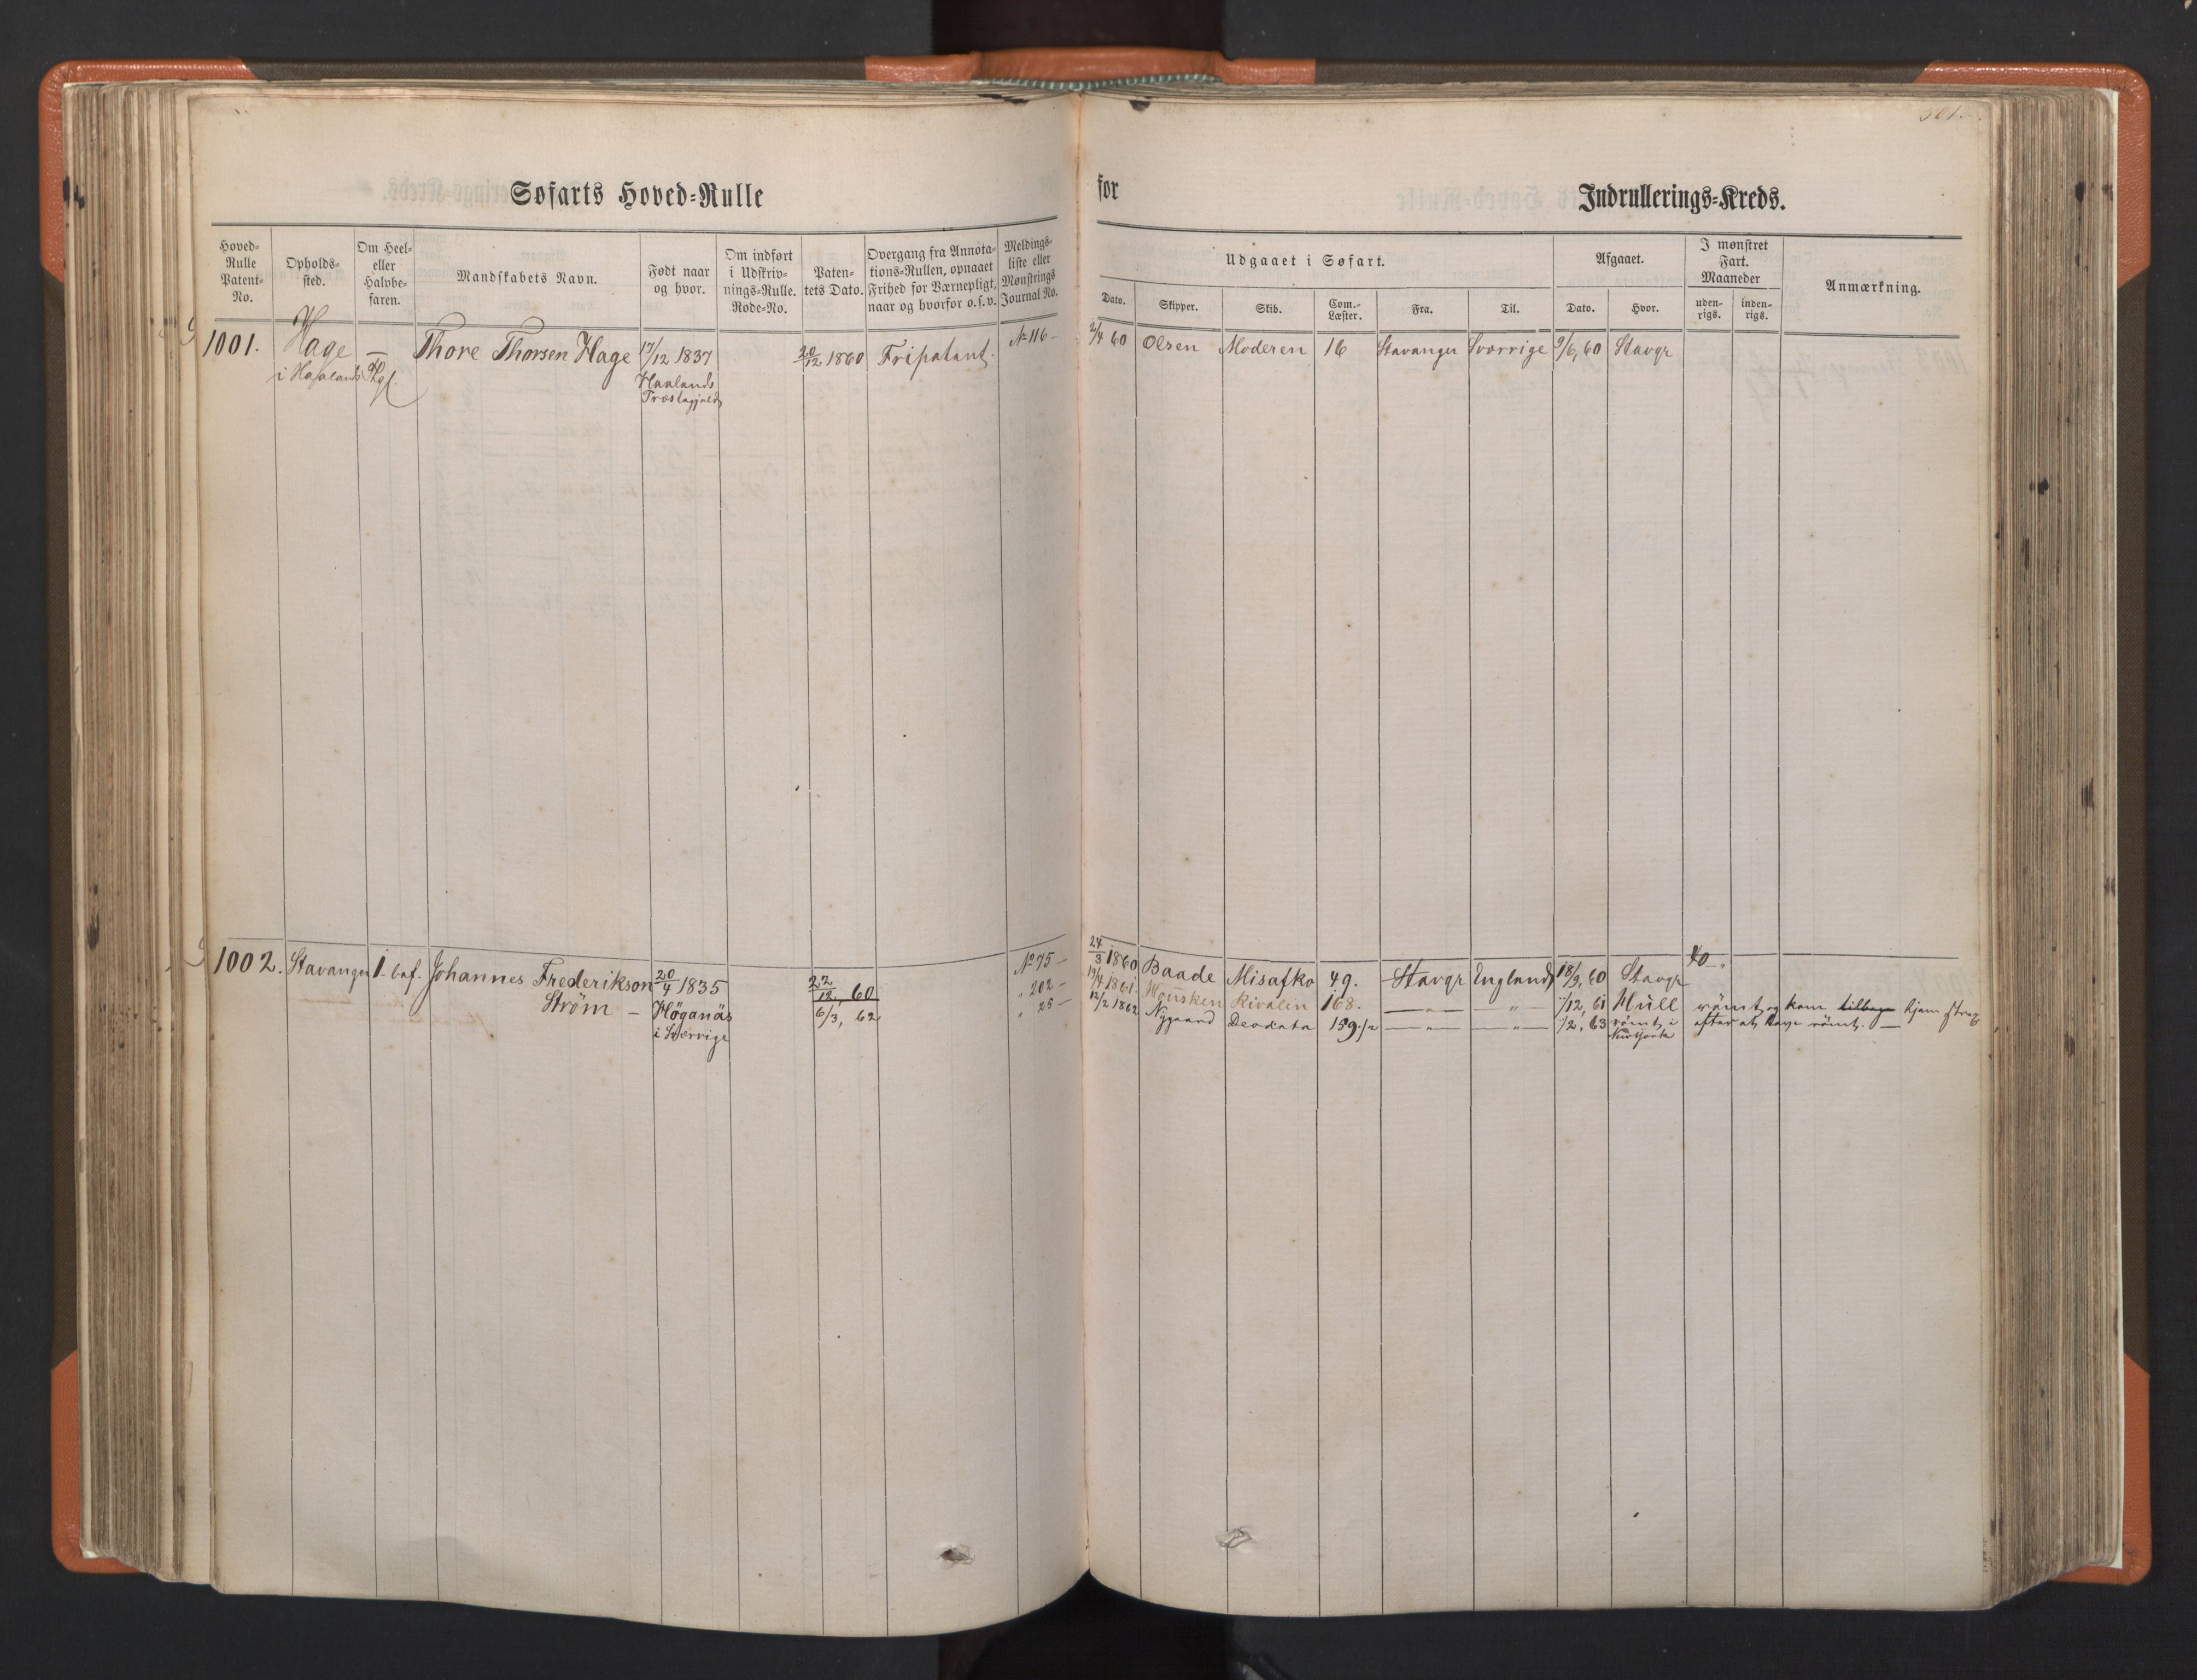 501.
Søfarts Hoved-Rulle for Indrullerings-Kreds.
Hoved-Rulle Patent-No.
Opholds-sted.
Om Heel- eller Halvbe-faren.
Mandskabets Navn.
Født naar og hvor.
Om indført i Udskriv-nings-Rulle. Rode-No.
Paten-tets Dato.
Overgang fra Annota-tions-Rullen, opnaaet Frihed for Værnepligt, naar og hvorfor o. s. v.
Meldings-liste eller Mønstrings Journal No.
Udgaaet i Søfart.
Dato.
Skipper.
Skib.
Com.-Læster.
Fra.
Til.
Afgaaet.
Dato.
Hvor.
I mønstret Fart. Maaneder
uden-rigs.
inden-rigs.
Anmærkning.
1001. Hage — Thore Thorsen Hage 17/12 1837 20/12 1860 Fripatent. No 116 — 2/4 60 Olsen Moderen 16 Stavanger Sverrige 9/6, 60 Stavgr
i Haaland
Haalands
Præstegjeld
1002. Stavanger 1. bef. Johannes Frederikson 20/4 1835 22/12, 60 No 75 — 24/3 1860 Baade Misafko 49. Stavgr England 18/9, 60 Stavgr 40.
Strøm — Höganäs 6/3, 62 " 202 — 19/4 1861. Rivalin 168. — " — — " — /12, 61 Hull rømt og kom tilbage hjem strax
i Sverrige " 25 — 12/2 1862 Nygaard Deodata 159 1/2 — " — — " — /2, 63 rømt i efter at have rømt. —
New York